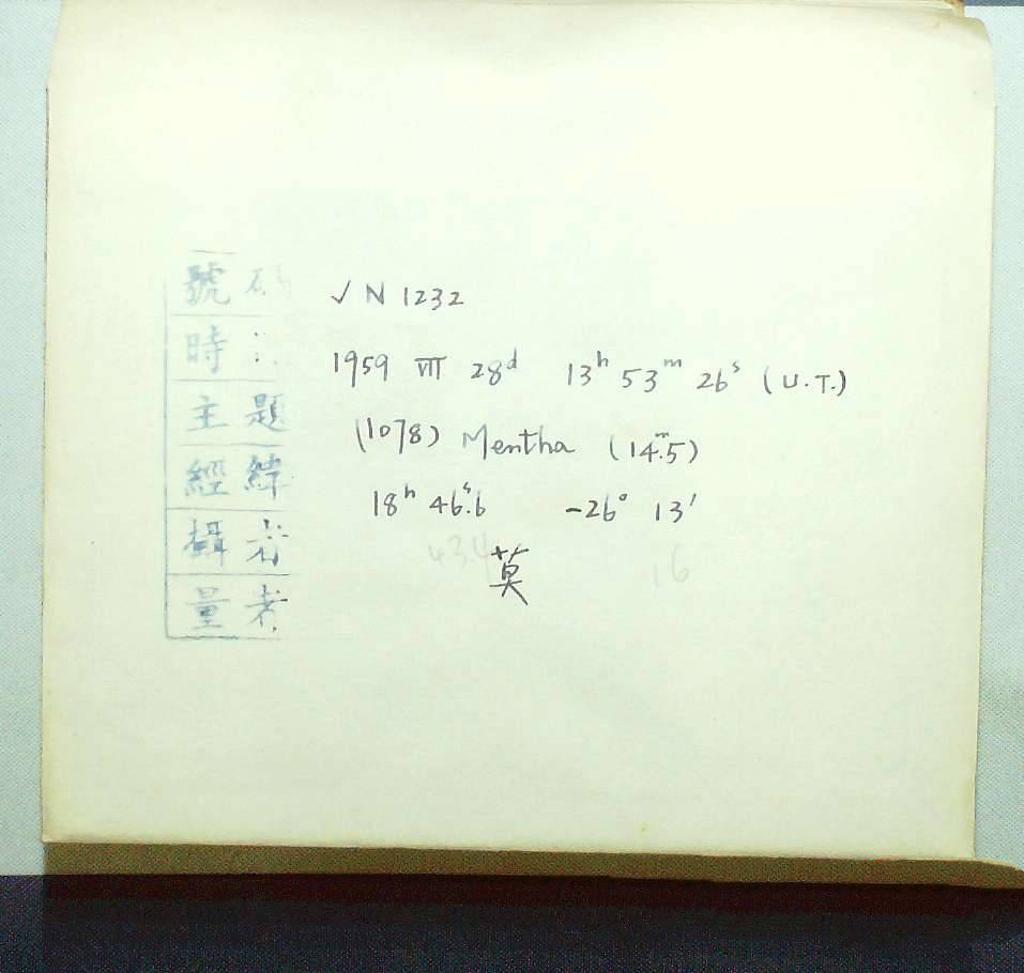 號 碼 √ N 1232
時 1959 VII 28ᵈ 13ʰ 53ᵐ 26ˢ (U.T.)
主 題 (1078) Mentha (14ᵐ.5)
經 緯 18ʰ 46ˢ.6 -26° 13'
43.4 16
攝 者 莫
量 者